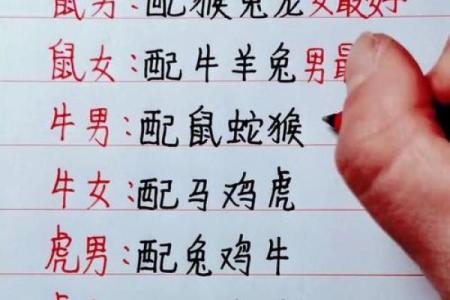 鼠男:配猴兔龙女最好
鼠女:配牛羊兔男最
牛男:配鼠蛇猴
牛女:配马鸡虎
虎男:配兔鸡牛